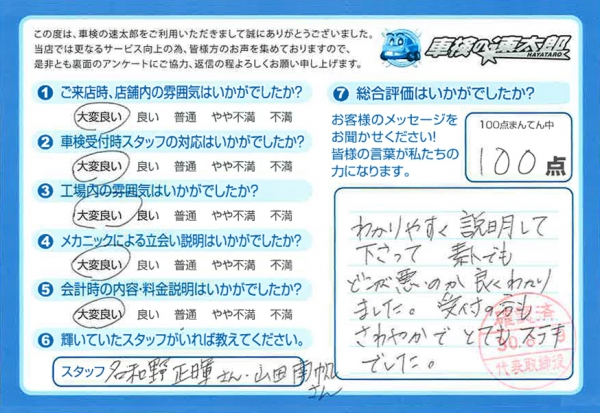 この度は、車検の速太郎をご利用いただきまして誠にありがとうございました。
当店では更なるサービス向上の為、皆様方のお声を集めておりますので、
是非とも裏面のアンケートにご協力、返信の程よろしくお願い申し上げます。
車検の速太郎
HAYATARO
1 ご来店時、店舗内の雰囲気はいかがでしたか?
大変良い 良い 普通 やや不満 不満
2 車検受付時スタッフの対応はいかがでしたか?
大変良い 良い 普通 やや不満 不満
3 工場内の雰囲気はいかがでしたか?
大変良い 良い 普通 やや不満 不満
4 メカニックによる立会い説明はいかがでしたか?
大変良い 良い 普通 やや不満 不満
5 会計時の内容・料金説明はいかがでしたか?
大変良い 良い 普通 やや不満 不満
6 輝いていたスタッフがいれば教えてください。
スタッフ 名和野 正暉さん・山田 南帆さん
7 総合評価はいかがでしたか?
お客様のメッセージを
お聞かせください!
皆様の言葉が私たちの
力になります。
100点まんてん中
100 点
わかりやすく 説明して
下さって 素人でも
どこが悪いのか 良くわかり
ました。 受付の方も
さわやかで とてもステキ
でした。
確認済
代表取締役